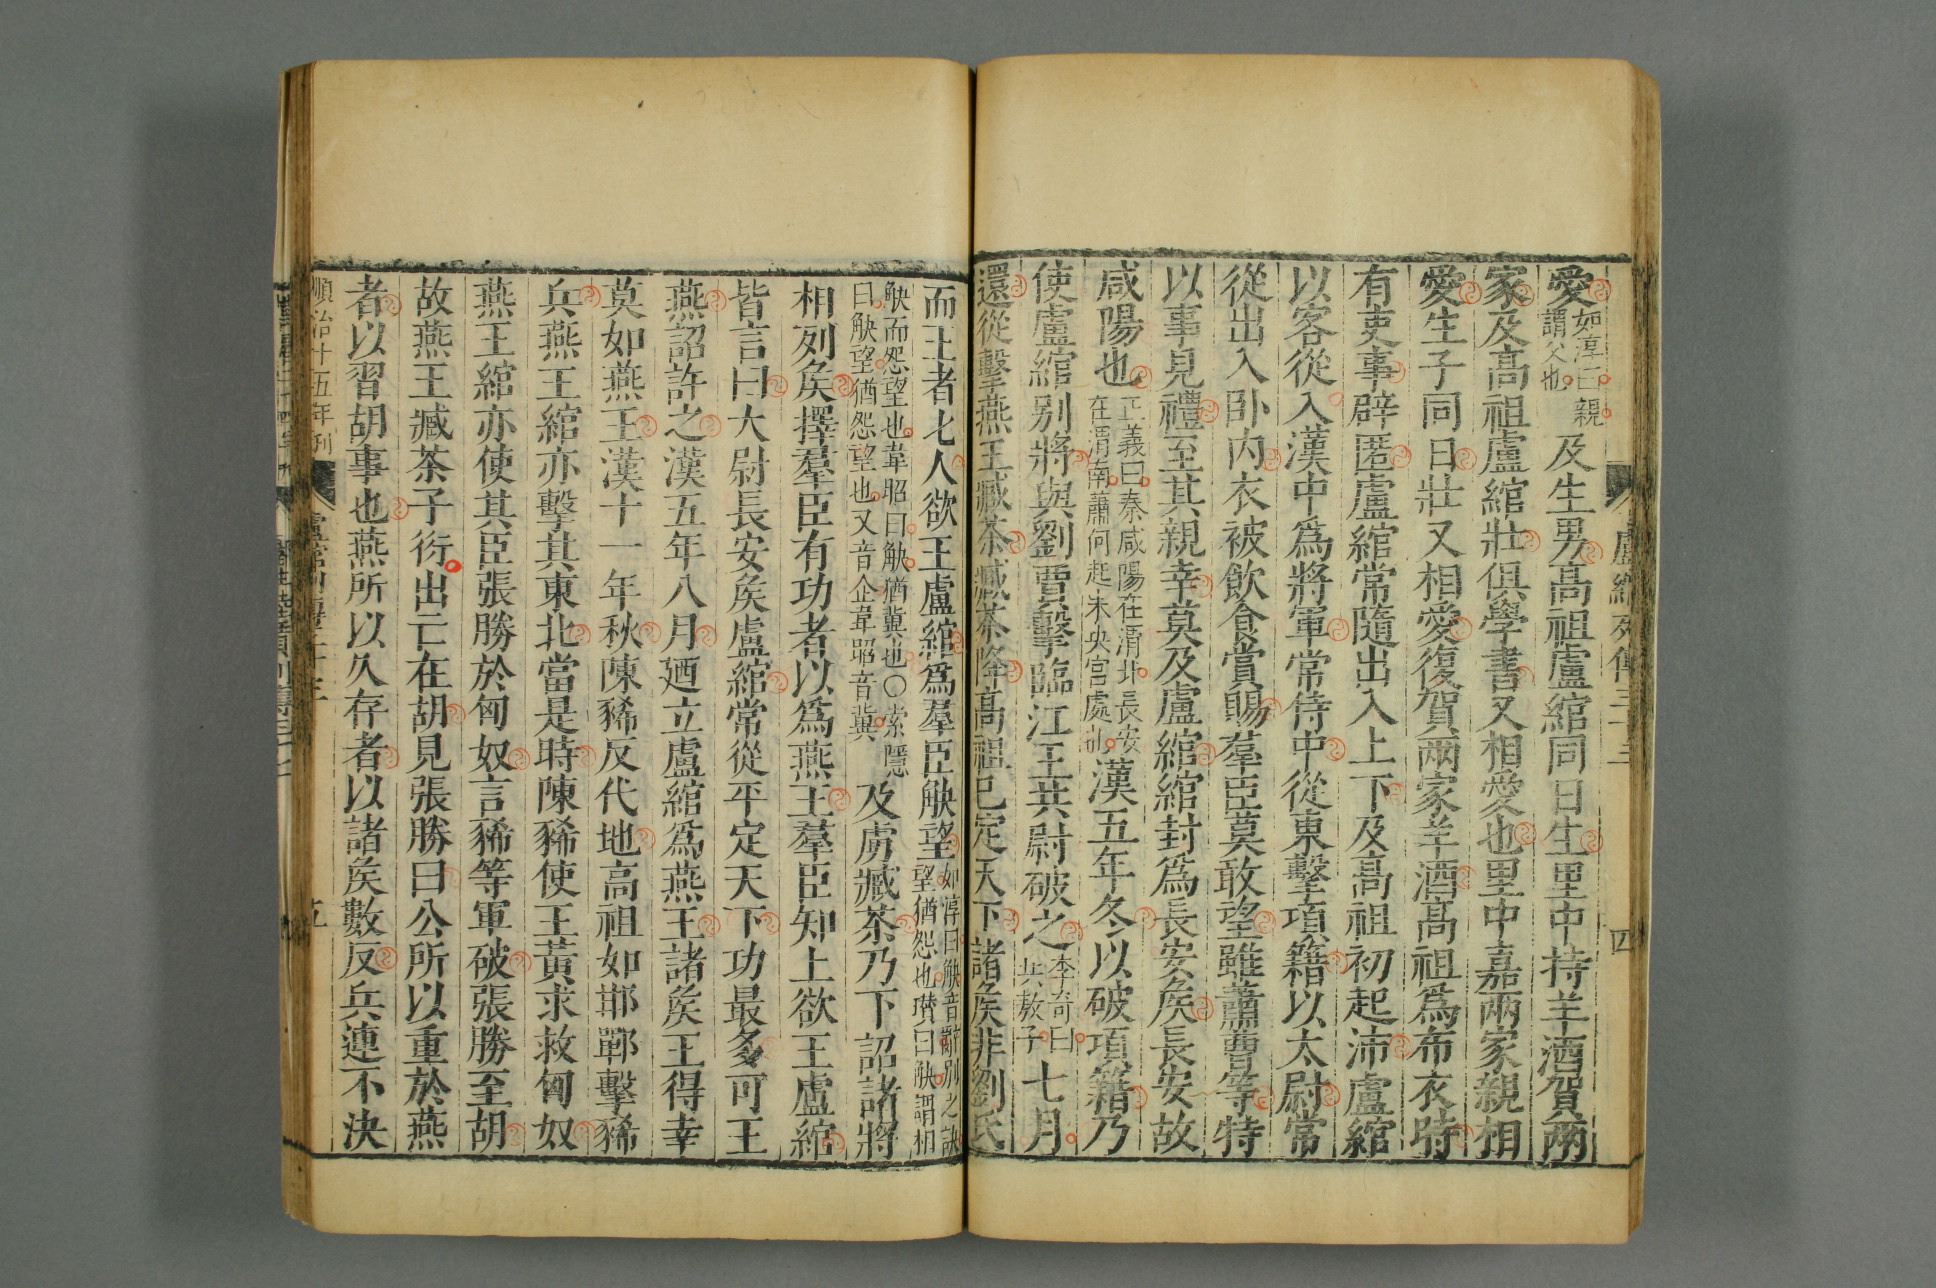 盧綰列傳三十三
四
愛如淳曰親謂父也及生男高祖盧綰同日生里中持羊酒賀兩
家及高祖盧綰壯俱學書又相愛也里中嘉兩家親相
愛生子同日壯又相愛復賀兩家羊酒高祖爲布衣時
有吏事辟匿盧綰常隨出入上下及高祖初起沛盧綰
以客從入漢中爲將軍常侍中從東擊項籍以太尉常
從出入卧內衣被飲食賞賜羣臣莫敢望雖蕭曹等特
以事見禮至其親幸莫及盧綰綰封爲長安矦長安故
咸陽也正義曰秦咸陽在渭北長安在渭南蕭何起未央宮處也漢五年冬以破項籍乃
使盧綰別將與劉賈擊臨江王共尉破之李奇曰共敖子七月
還從擊燕王臧荼臧荼降高祖已定天下諸矦非劉氏
而王者七人欲王盧綰爲羣臣觖望如淳曰觖音辭別之訣望猶怨也瓚曰觖謂相
觖而怨望也韋昭曰觖猶冀也○索隱曰觖望猶怨望也又音企韋昭音冀及虜臧荼乃下詔諸將
相列矦擇羣臣有功者以爲燕王羣臣知上欲王盧綰
皆言曰大尉長安矦盧綰常從平定天下功最多可王
燕詔許之漢五年八月廼立盧綰爲燕王諸矦王得幸
莫如燕王漢十一年秋陳豨反代地高祖如邯鄲擊豨
兵燕王綰亦擊其東北當是時陳豨使王黃求救匈奴
燕王綰亦使其臣張勝於匈奴言豨等軍破張勝至胡
故燕王臧荼子衍出亡在胡見張勝曰公所以重於燕
者以習胡事也燕所以久存者以諸矦數反兵連不決
順治十五年刊
五